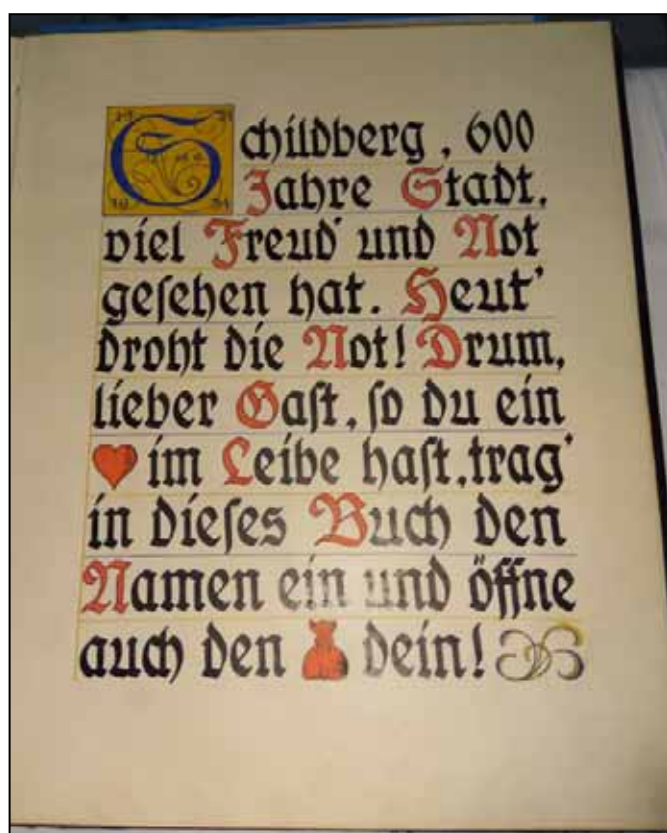 Schildberg, 600
Jahre Stadt,
viel Freud' und Not
geſehen hat. Heut'
droht die Not! Drum,
lieber Gaſt, ſo du ein
♥ im Leibe haſt, trag'
in dieſes Buch den
Namen ein und öffne
auch den dein!